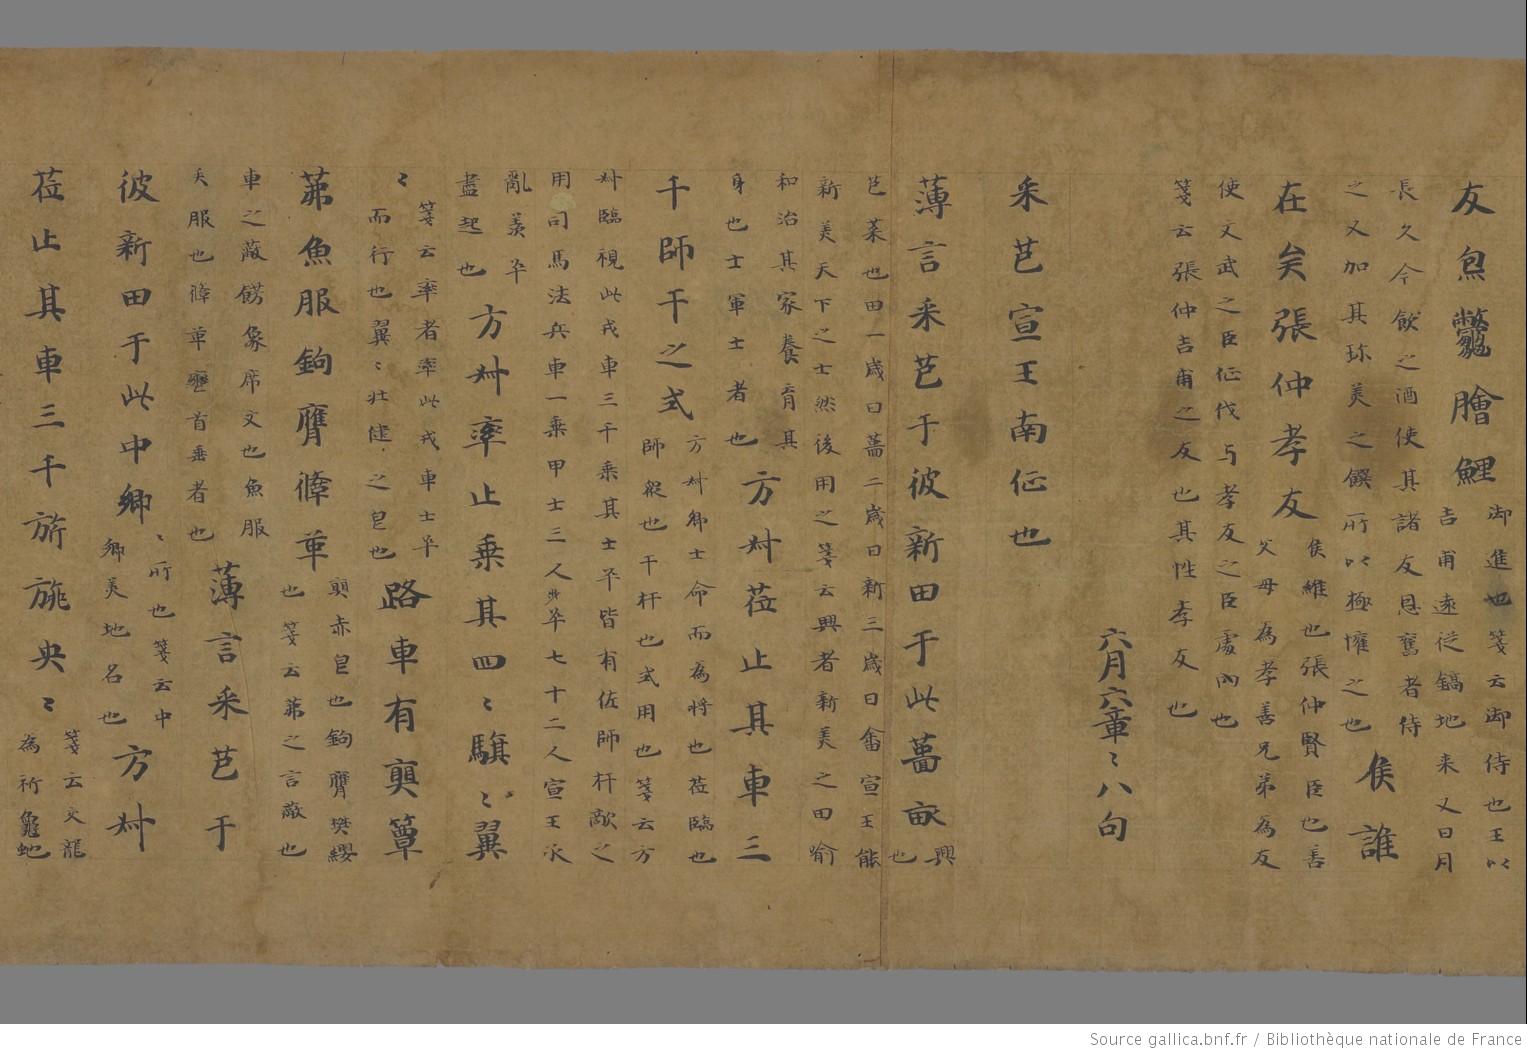 友炰鼈膾鯉
御進也箋云御侍也王以
吉甫遠從鎬地来又日月
長久今飲之酒使其諸友恩舊者侍
之又加其珎美之饌所以極懽之也
侯誰
在矣張仲孝友
侯維也張仲賢臣也善
父母為孝善兄弟為友
使文武之臣征伐与孝友之臣處内也
箋云張仲吉甫之友也其性孝友也
六月六章〻八句
采芑宣王南征也
薄言采芑于彼新田于此菑畝
興
也
芑菜也田一歲曰菑二歲曰新三歲曰畬宣王能
新美天下之士然後用之箋云興者新美之田喻
和治其家養育其
身也士軍士者也
方叔莅止其車三
千師干之式
方叔卿士命而為将也莅臨也
師衆也干杆也式用也箋云方
叔臨視此戎車三千乗其士卒皆有佐師杆敵之
用司馬法兵車一乗甲士三人步卒七十二人宣王承
亂羨卒
盡起也
方叔率止乗其四〻騏〻翼
〻
箋云率者率此戎車士卒
而行也翼〻壯健之皃也
路車有奭簟
茀魚服鉤膺鞗革
奭赤皃也鉤膺樊纓
也箋云茀之言蔽也
車之蔽餝象席文也魚服
矢服也鞗革轡首垂者也
薄言采芑于
彼新田于此中鄉
〻所也箋云中
鄉美地名也
方叔
莅止其車三千旂旐央〻
箋云交龍
為旂龜蛇
Source gallica.bnf.fr / Bibliothèque nationale de France